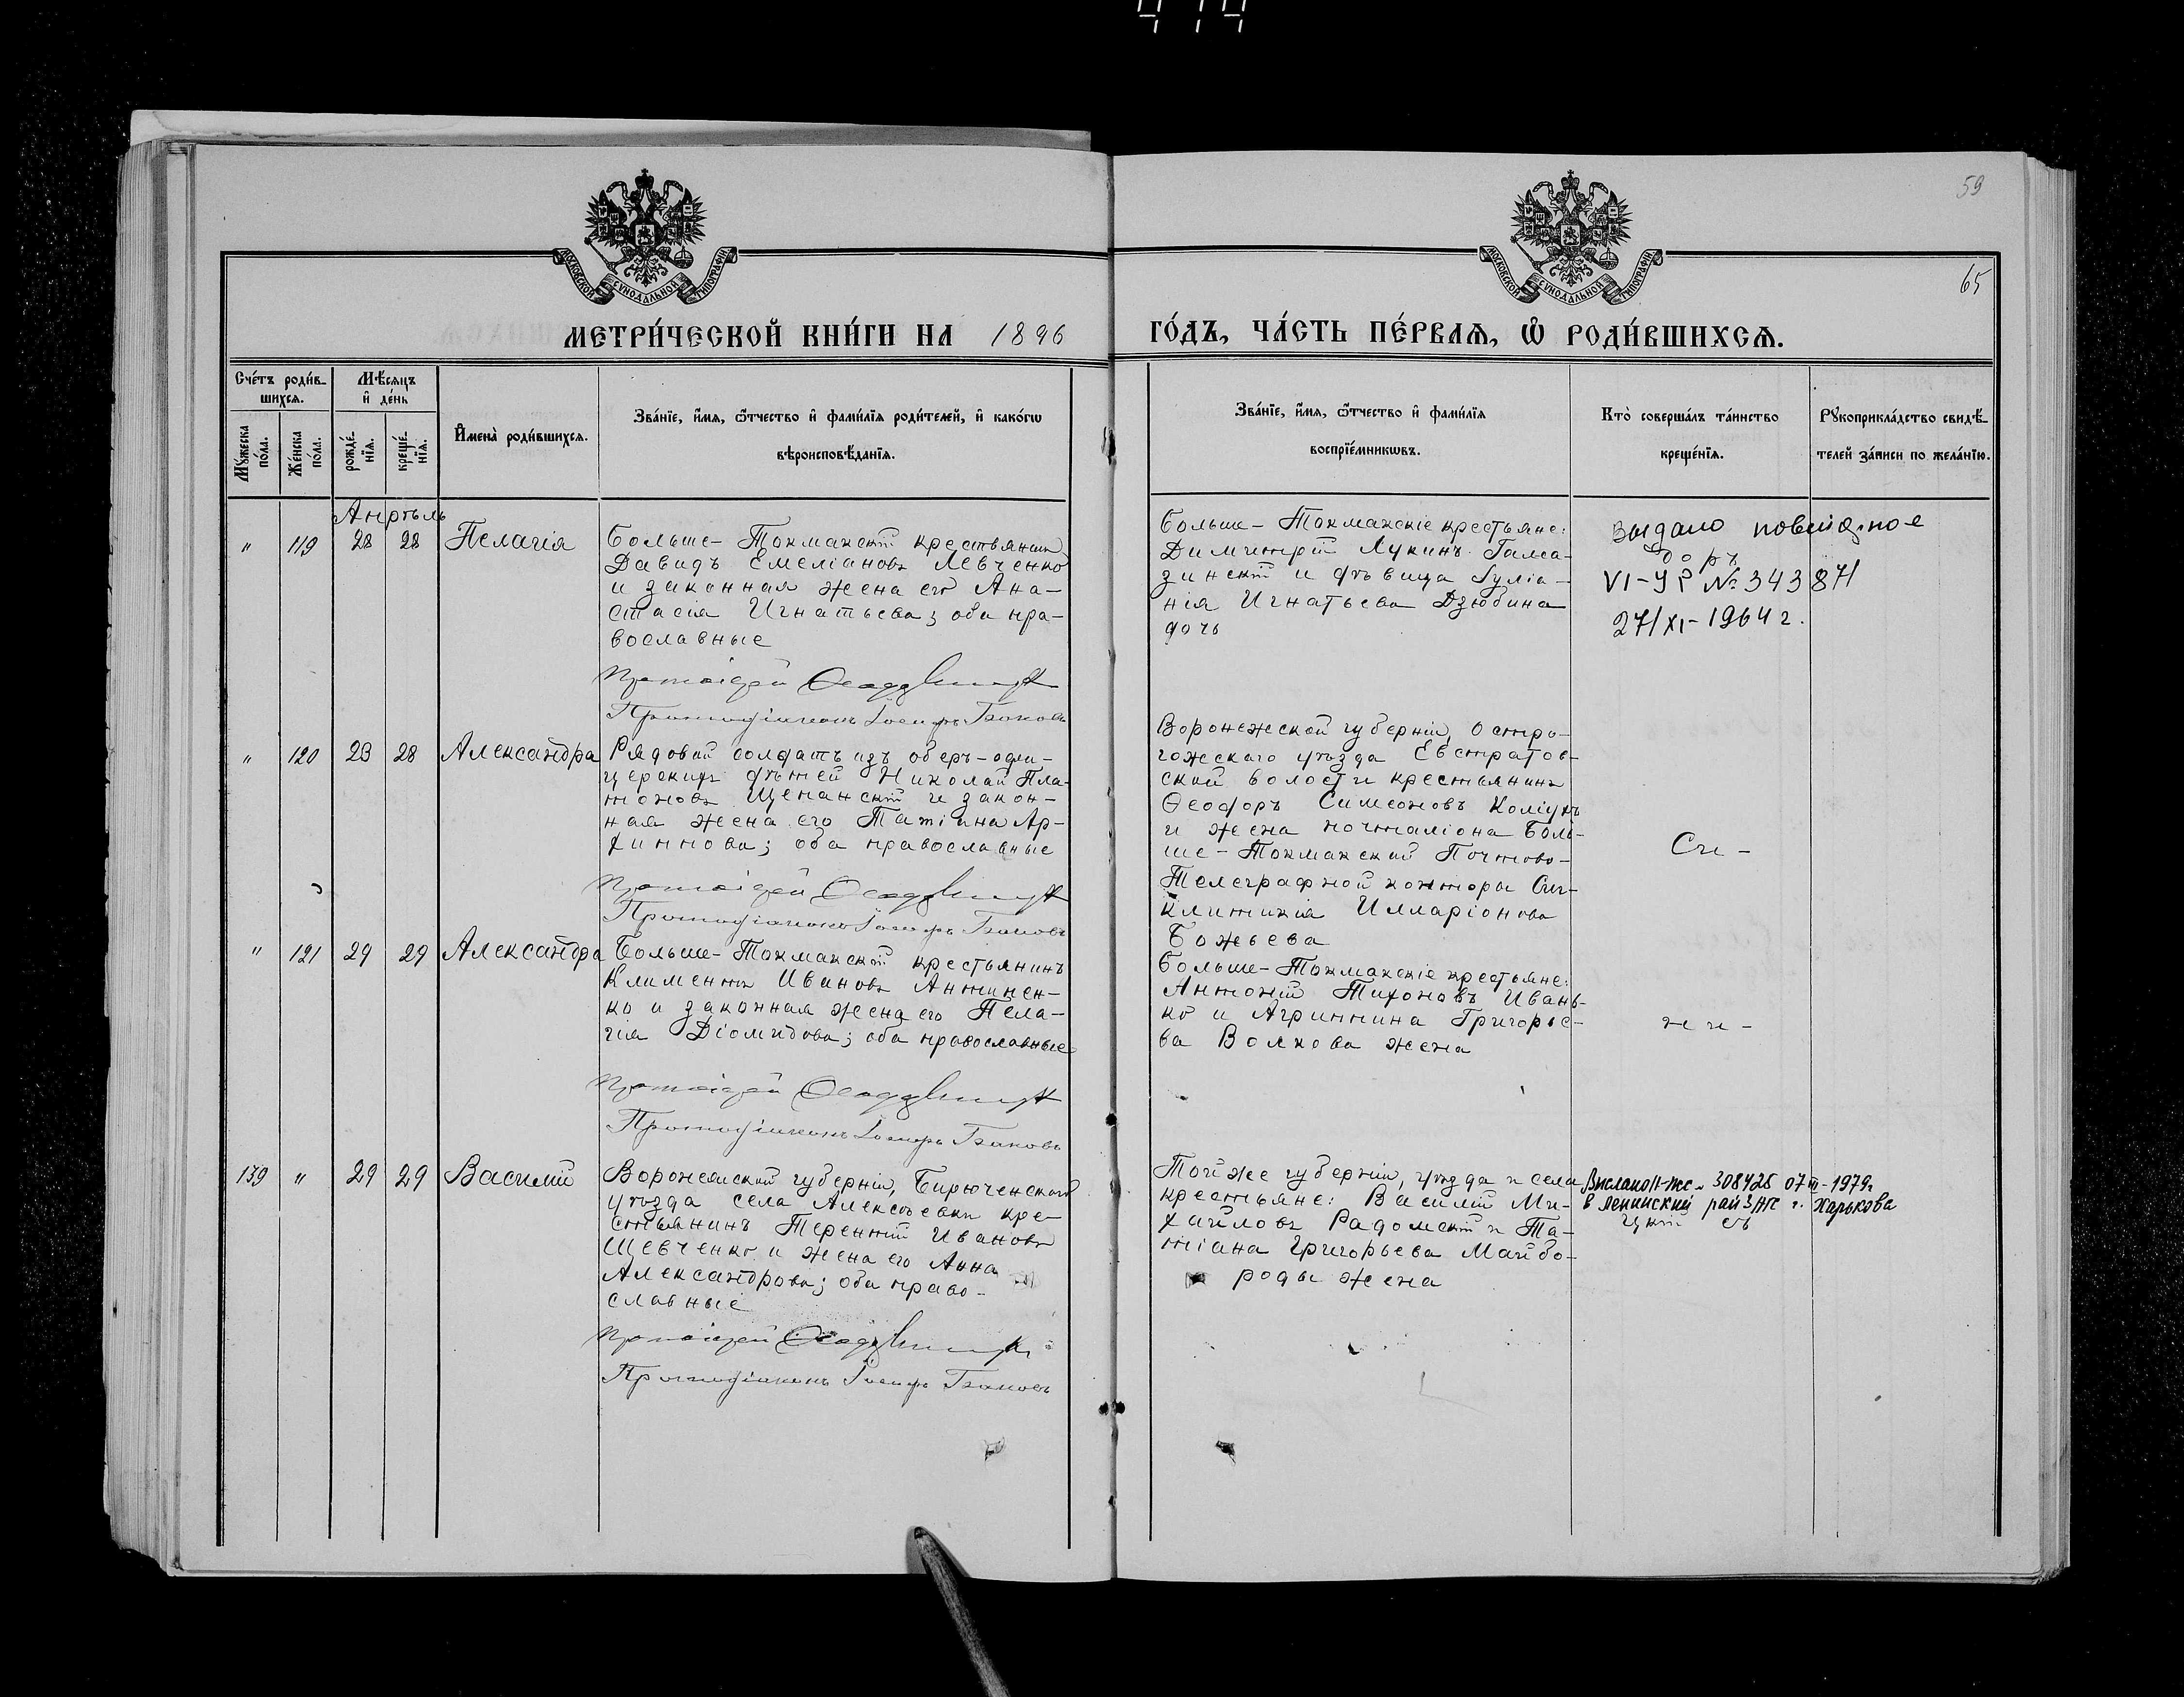 59
65
МОСКОВСКОЙ СУНОДАЛЬНОЙ ТИПОГРАФІИ
МОСКОВСКОЙ СУНОДАЛЬНОЙ ТИПОГРАФІИ
МЕТРИ́ЧЕСКОЙ КНИ́ГИ НА 1896 ГО́ДЪ, ЧА́СТЬ ПЕ́РВАѦ, Ѡ҆ РОДИ́ВШИХСѦ.
Сче́тъ роди́в-
шихсѧ.
Мꙋ́жеска по́ла.
Же́нска по́ла.
Мѣ́сѧцъ
и҆ де́нь
рожде́-нїѧ.
креще́-нїѧ.
И҆мена̀ роди́вшихсѧ.
Зва́нїе, и҆́мѧ, ѻ҆́тчество и҆ фами́лїѧ роди́телей, и҆ како́гѡ
вѣроисповѣ́данїѧ.
Зва́нїе, и҆́мѧ, ѻ҆́тчество и҆ фами́лїѧ
воспрїе́мникѡвъ.
Кто̀ соверша́лъ та́инство
креще́нїѧ.
Рꙋкоприкла́дство свидѣ́-
телей за́писи по жела́нїю.
Апрѣль
" 119 28 28 Пелагія
Больше-Токмакскій крестьянинъ
Давидъ Емеліановъ Левченко
и законная жена его Ана-
стасія Игнатьева; оба пра-
вославные
Протоіерей
Протодіаконъ Іосифъ
Больше-Токмакскіе крестьяне:
Димитрій Лукинъ Гама-
зинскій и дѣвица Іуліа-
нія Игнатьева Дзюбина
дочь
Выдано повторное
VI-УР № 343871
27/XI-1964 г.
" 120 23 28 Александра
Рядовой солдатъ изъ оберъ-офи-
церскихъ дѣтей Николай Пла-
тоновъ Щепанскій и закон-
ная жена его Татіана Ар-
хиппова; оба православные
Протоіерей
Протодіаконъ Іосифъ
Воронежской губерніи, Остро-
гожскаго уѣзда Евстратов-
ской волости крестьянинъ
Ѳеодоръ Симеоновъ
и жена почталіона Боль-
ше-Токмакской Почтово-
Телеграфной конторы Син-
клитикія Илларіонова
Божьева
" 121 29 29 Александра
Больше-Токмакскій крестьянинъ
Климентъ Ивановъ Антинен-
ко и законная жена его Пела-
гія Діомидова; оба православные
Протоіерей
Протодіаконъ Іосифъ
Больше-Токмакскіе крестьяне:
Антоній Тихоновъ Ивань-
ко и Агриппина Григорье-
ва Волкова жена
139 " 29 29 Василій
Воронежской губерніи, Бирюченскаго
уѣзда села Алексѣевки кре-
стьянинъ Терентій Ивановъ
Шевченко и жена его Анна
Александрова; оба право-
славные
Протоіерей
Протодіаконъ Іосифъ
Той же губерніи, уѣзда и села
крестьяне: Василій Ми-
хайловъ Радомскій и Та-
тіана Григорьева Майбо-
роды жена
308428 07 III-1979г
в ленинский рай ЗАГС г. Харькова